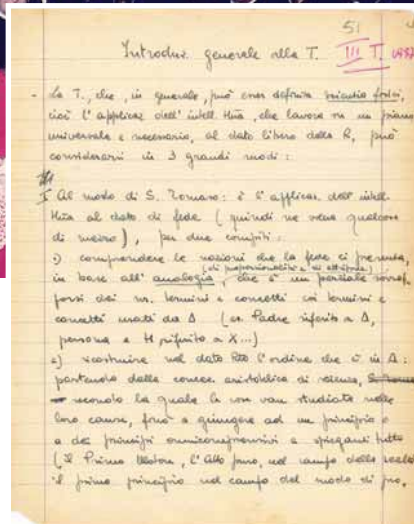 51
Introduz. generale alla T. III T.
- La T., che, in generale, può esser definita scientia fidei,
cioè l'applicaz. dell'intell. Hna, che lavora su un piano
universale e necessario, al dato libero della R, può
considerarsi in 3 grandi modi:
I Al modo di S. Tomaso: è l'applicaz. dell'intell.
Hna al dato di fede (quindi ne viene qualcosa
di nuovo), per due compiti:
comprendere le nozioni che la fede ci presenta,
(di proporzionalità e di attribuz.)
in base all'analogia, che è un parziale sovrap-
porsi dei ns. termini e concetti coi termini e
concetti usati da Δ (es Padre riferito a Δ,
persona e H riferito a X...)
ricostruire nel dato Rto l'ordine che è in Δ:
partendo dalla concez. aristotelica di scienza,
secondo la quale le cose van studiate nelle
loro cause, fino a giungere ad un principio o
a dei principi onnicomprensivi e spieganti tutto
(il Primo Motore, l'Atto puro, nel campo della realtà
il primo principio nel campo del modo di pro.